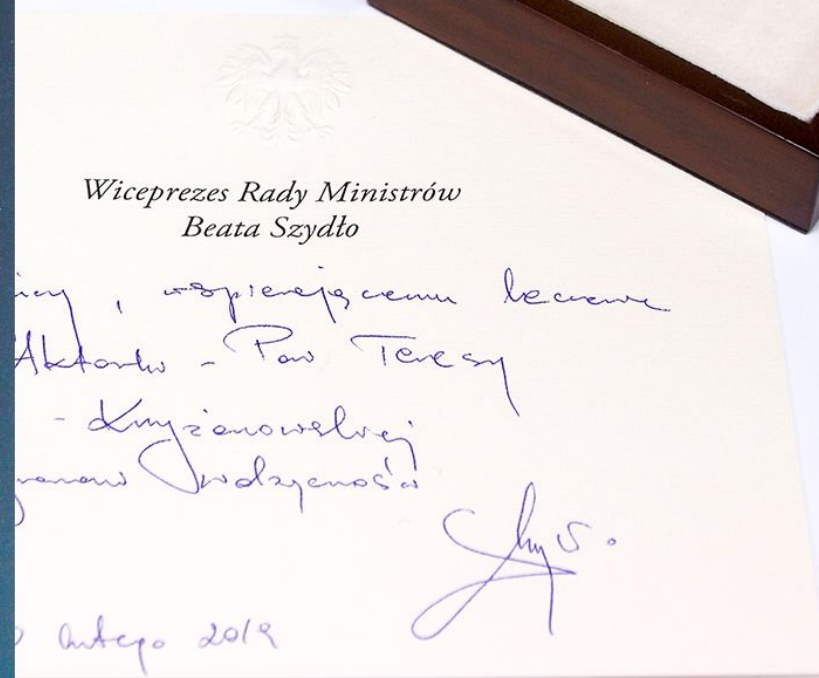 Wiceprezes Rady Ministrów
Beata Szydło
, wspierającemu leczenie
Aktorki - Pani Teresy
- Krzyżanowskiej
wdzięcznością
lutego 2019